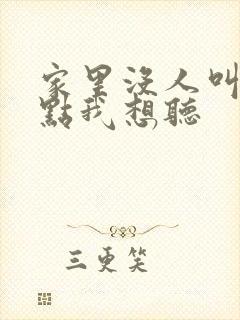 家里沒人叫
點我想聽
三更笑